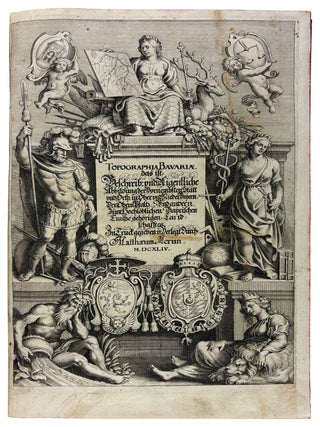 TOPOGRAPHIA BAVARIÆ
das ist
Beschreib: vnd Aigentliche
Abbildung der Vornembsten Stätt
vnd Orth, in Ober vnd Nieder Beyern,
Der Obern Pfaltz, Vnd andern,
Zum Hochlöblichen Bayrischen
Craiße gehörigen Land
schafften.
In Truck gegeben v. Verlegt Durch
Matthæum Merian
M.DC.XLIV.